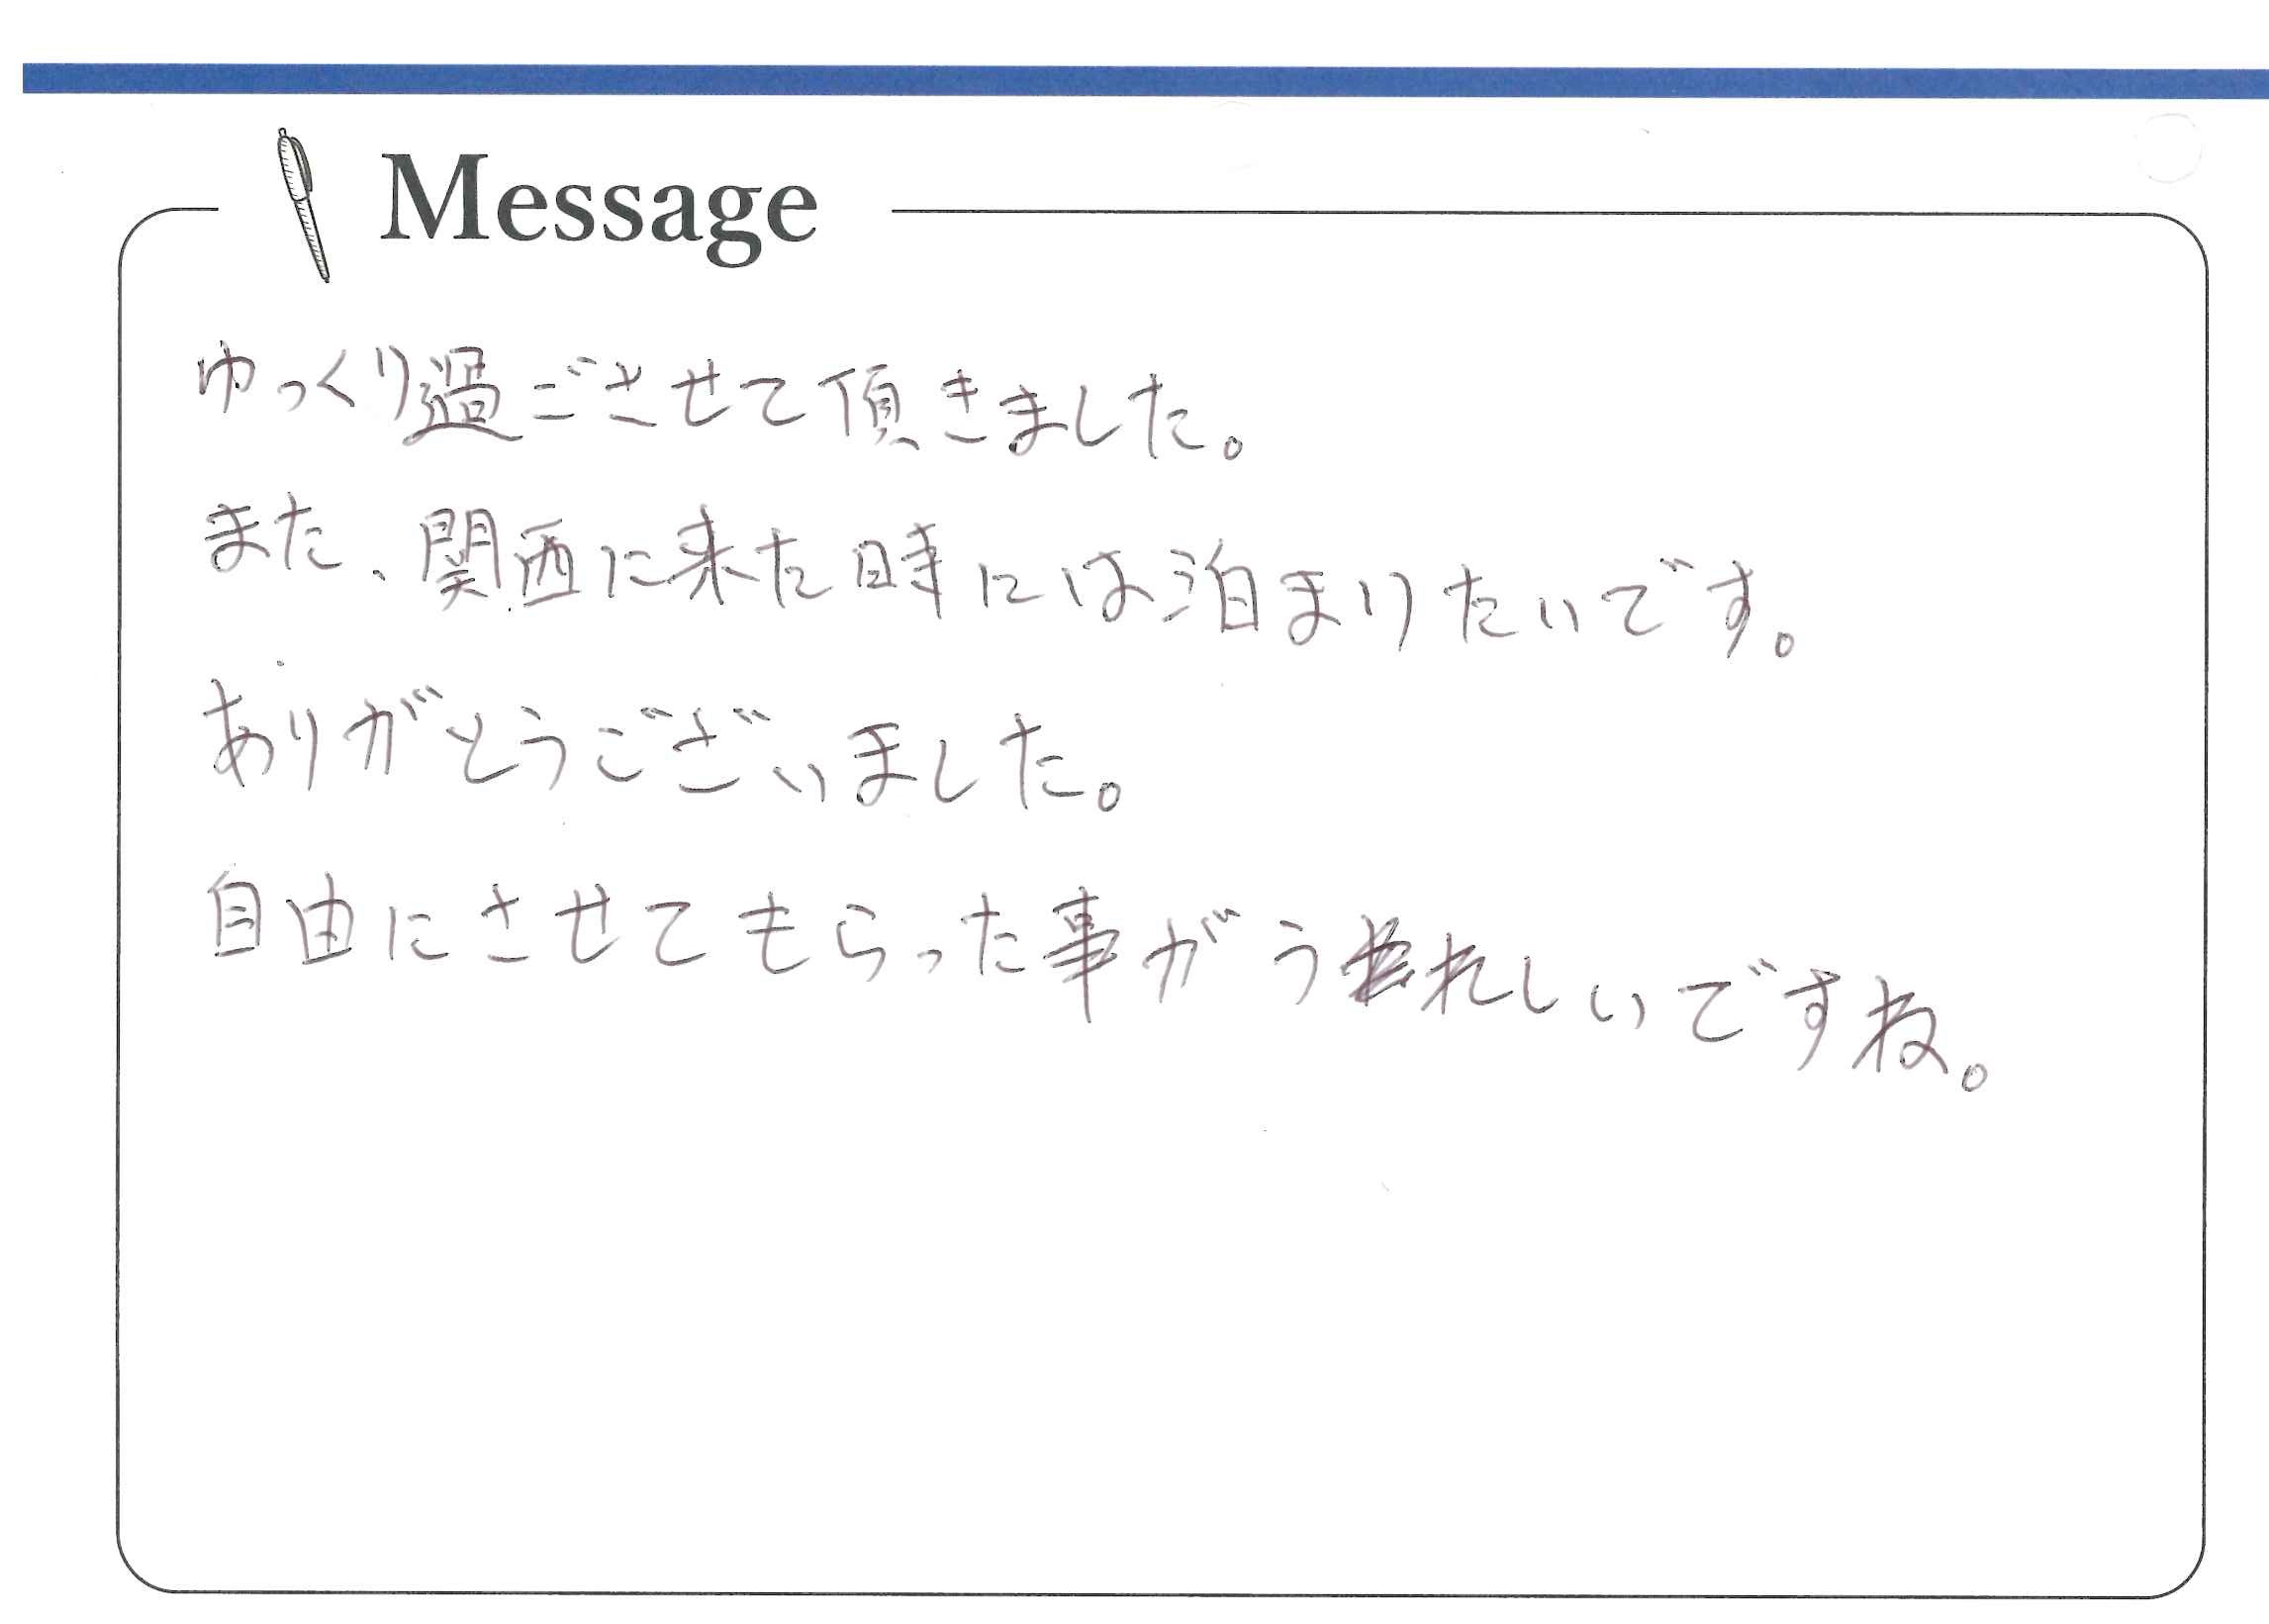 Message
ゆっくり過ごさせて頂きました。
また、関西に来た時には泊まりたいです。
ありがとうございました。
自由にさせてもらった事がうれしいですね。